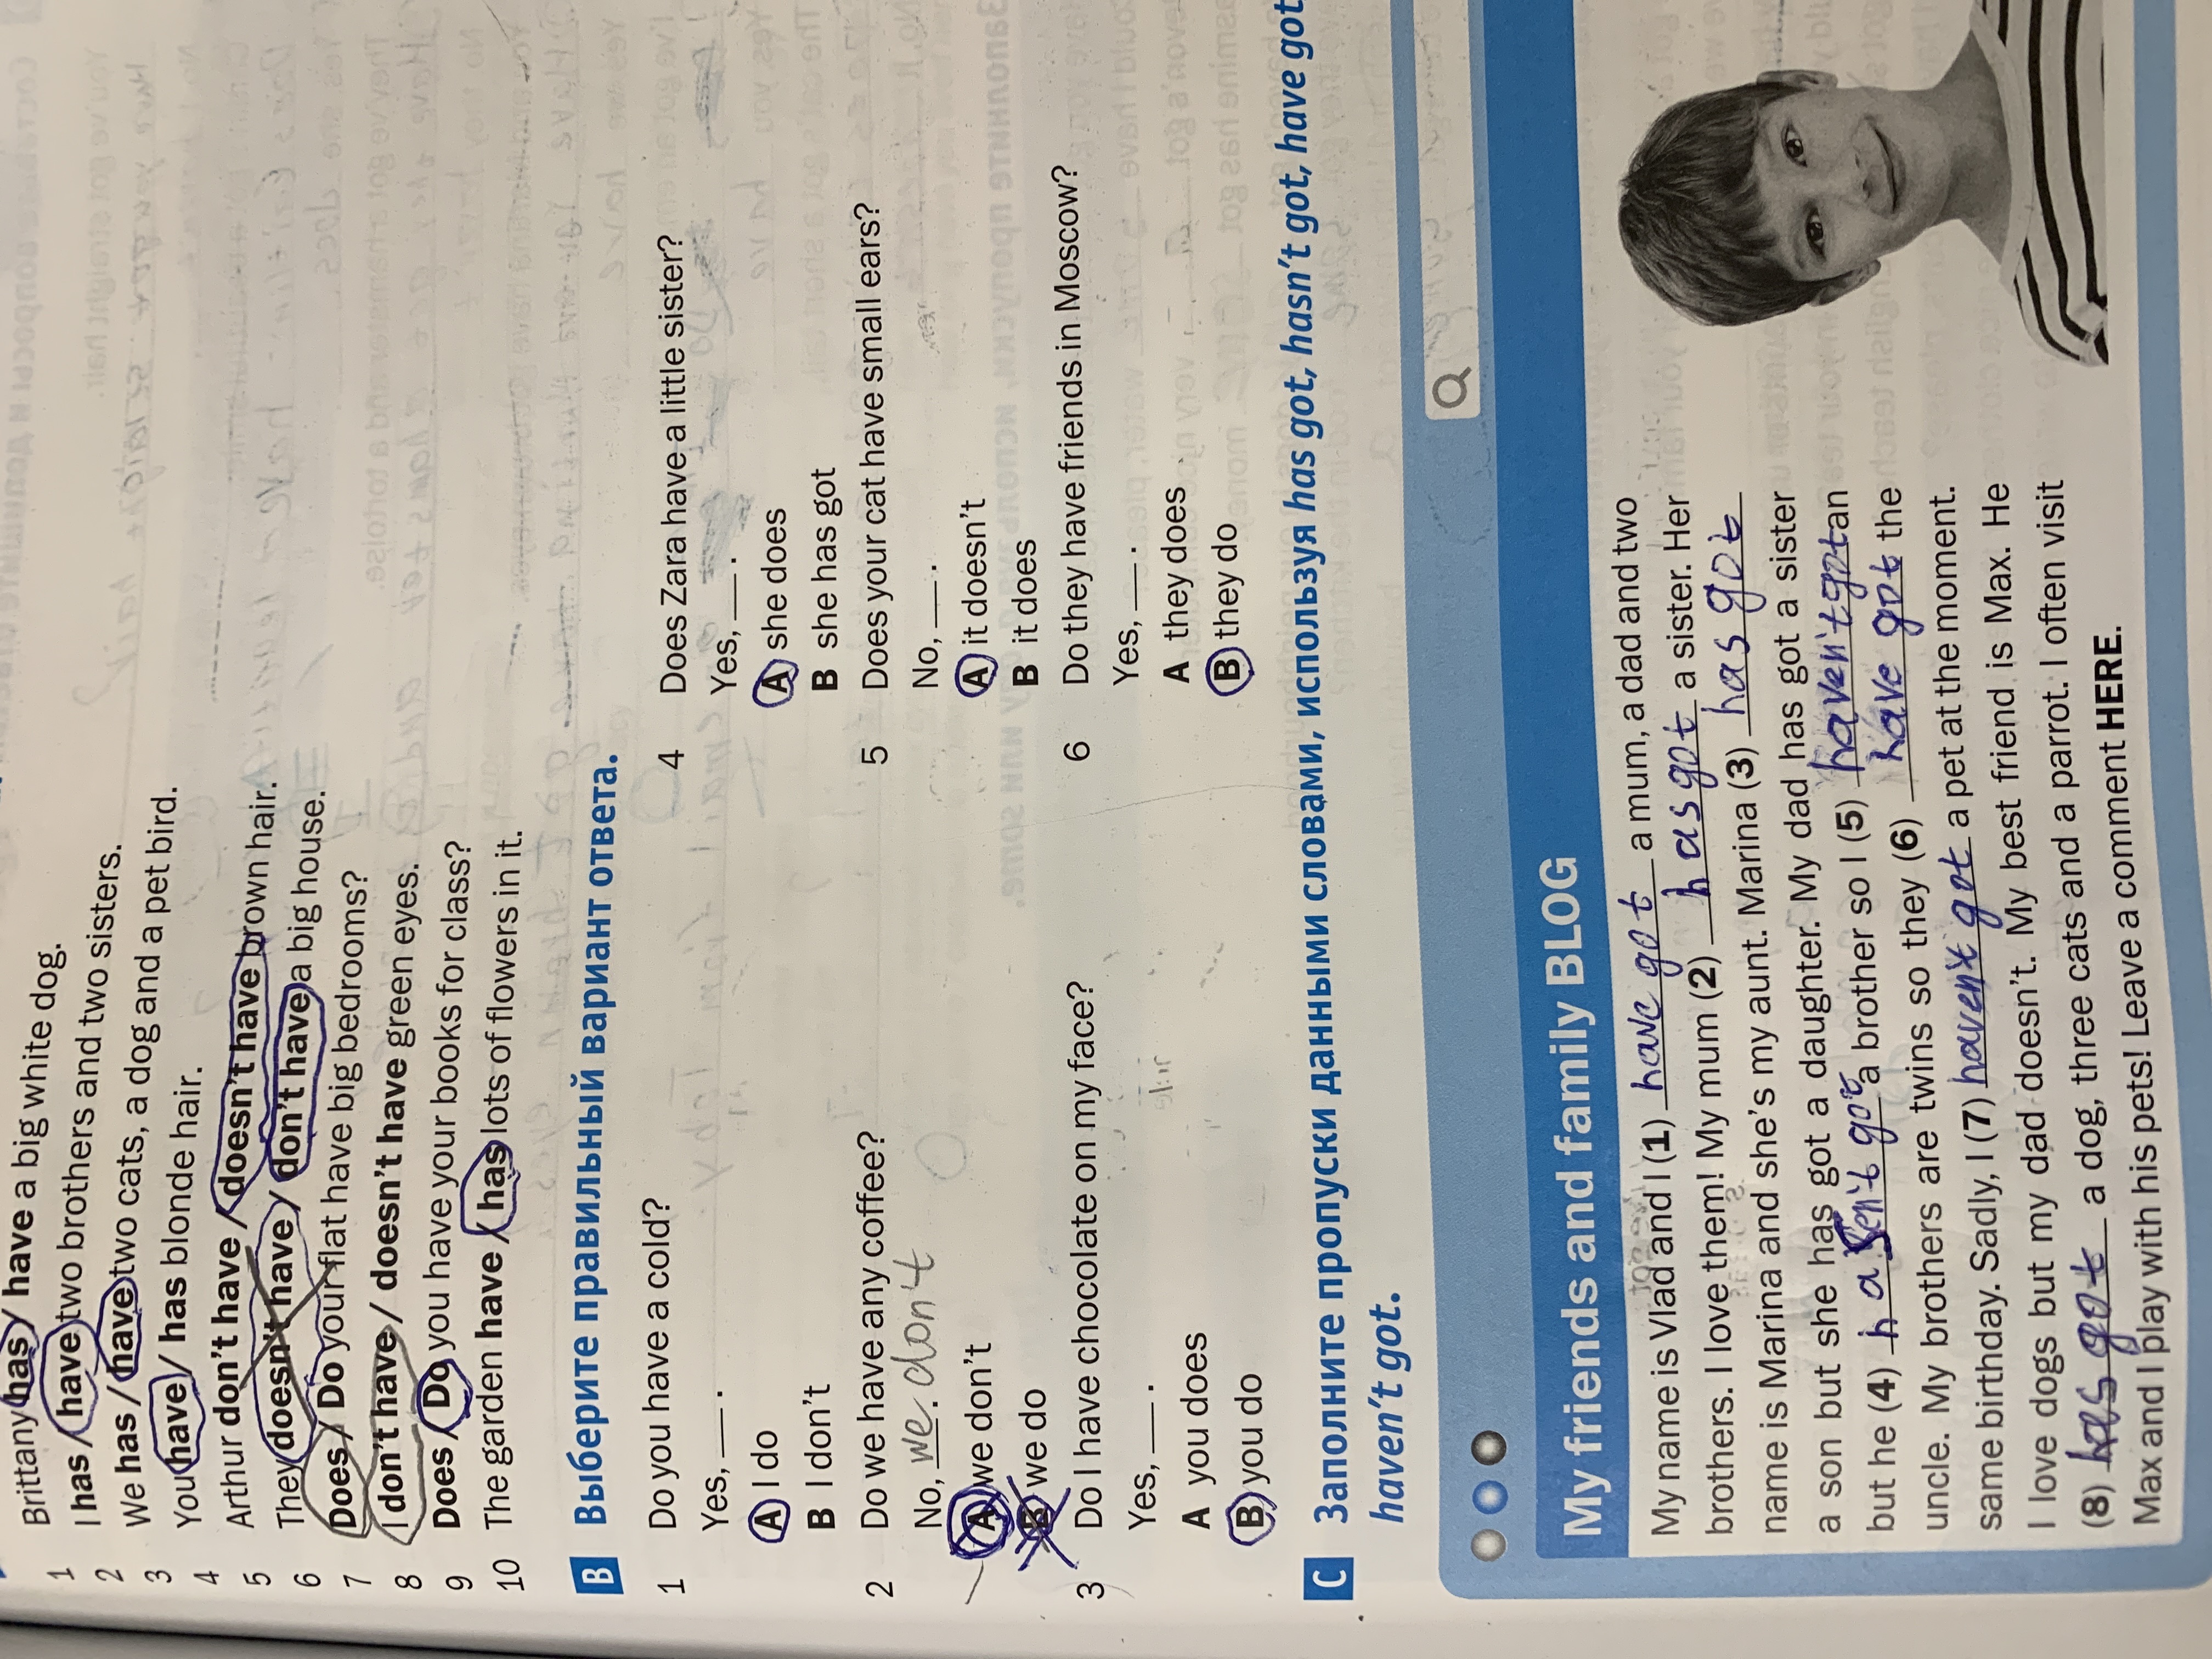 Brittany has / have a big white dog.
1 I has / have two brothers and two sisters.
2 We has / have two cats, a dog and a pet bird.
3 You have / has blonde hair.
4 Arthur don't have / doesn't have brown hair.
5 They doesn't have / don't have a big house.
6 Does / Do your flat have big bedrooms?
7 I don't have / doesn't have green eyes.
8 Does / Do you have your books for class?
9 The garden have / has lots of flowers in it.
10
B Выберите правильный вариант ответа.
1 Do you have a cold?
Yes, ___.
A I do
B I don't
2 Do we have any coffee?
No, we don't.
A we don't
B we do
3 Do I have chocolate on my face?
Yes, ___.
A you does
B you do
4 Does Zara have a little sister?
Yes, ___.
A she does
B she has got
5 Does your cat have small ears?
No, ___.
A it doesn't
B it does
6 Do they have friends in Moscow?
Yes, ___.
A they does
B they do
C Заполните пропуски данными словами, используя has got, hasn't got, have got
haven't got.
My friends and family BLOG
My name is Vlad and I (1) have got a mum, a dad and two
brothers. I love them! My mum (2) has got a sister. Her
name is Marina and she's my aunt. Marina (3) has got
a son but she has got a daughter. My dad has got a sister
but he (4) hasen't got a brother so I (5) haven't got an
uncle. My brothers are twins so they (6) have got the
same birthday. Sadly, I (7) haven't got a pet at the moment.
I love dogs but my dad doesn't. My best friend is Max. He
(8) has got a dog, three cats and a parrot. I often visit
Max and I play with his pets! Leave a comment HERE.